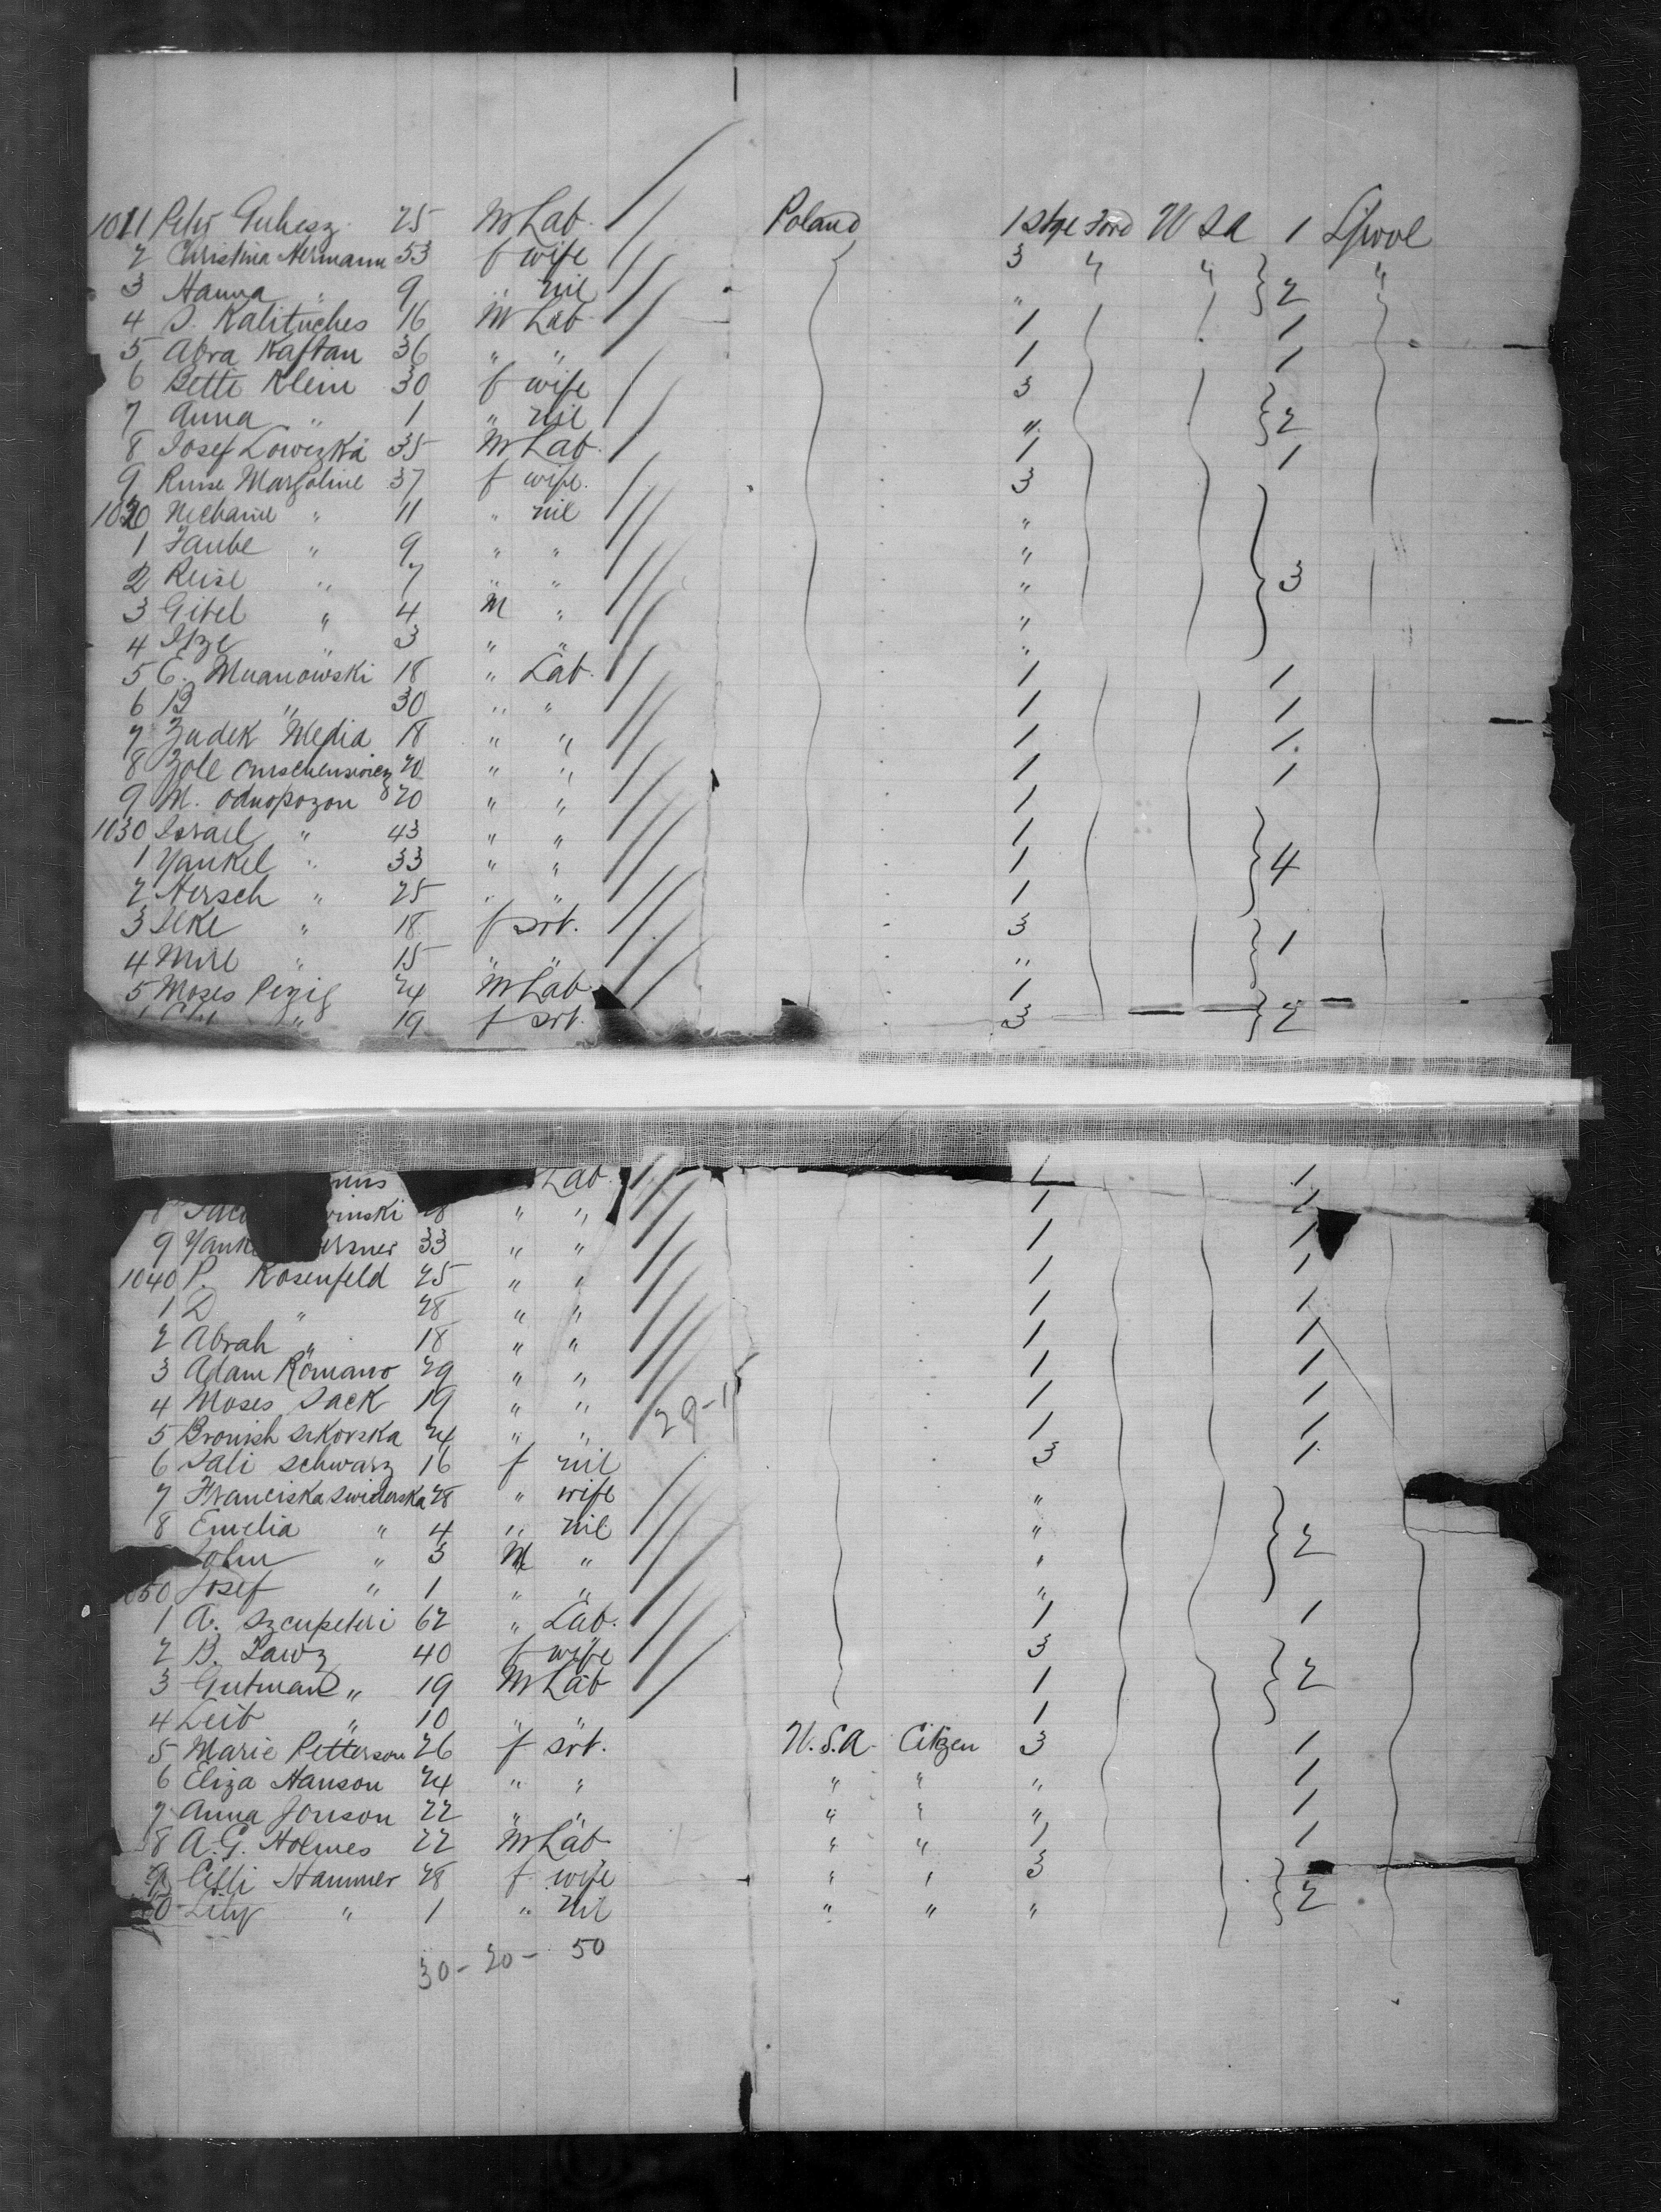 1011 Peter Guhesz 25 M Lab. Poland 1 Stge Ford U S A 1 L'pool
2 Christina Hermann 53 f wife 3 " " 2 "
3 Hanna " 9 " nil "
4 S. Kalituches 16 M Lab 1 1
5 Abra Kaftan 36 " " 1 1
6 Betti Klein 30 f wife 3
7 Anna " 1 " nil " 2
8 Josef Lowizka 35 M Lab. 1 1
9 Rinse Margoline 37 f wife. 3
1020 Nechame " 11 " nil "
1 Taube " 9 " " "
2 Reise " 7 " " " 3
3 Gitel " 4 M " "
4 Itze " 3 " " "
5 E. Muanowski 18 " Lab. 1 1
6 B " 30 " " 1 1
7 Zudek Media 18 " " 1 1.
8 Zole 20 " " 1 1
9 M. Odnopozon 20 " " 1
1030 Israel " 43 " " 1
1 Yankel " 33 " " 1 4
2 Hersch " 25 " " 1
3 Ilke " 18 f srt. 3 1
4 Mire " 15 " " "
5 Moses Pezig 24 M Lab 1
" 19 f srt. 3 2
Lab. 1 1
8 inski 28 " " 1 1
9 Yank ersner 33 " " 1 1
1040 P. Rosenfeld 25 " " 1 1
1 D " 28 " " 1 1
2 Abrah " 18 " " 1 1
3 Adam Romano 29 " " 1 1
4 Moses Sack 19 " " 29-1 1 1
5 Bronish Sikorska 24 " " 1 1
6 Sali Schwarz 16 f nil 3 1
7 Franciska Swiderska 28 " wife "
8 Emelia " 4 " nil " 2
John " 3 M " "
50 Josef " 1 " " "
1 A. Szcupeteri 62 " Lab. 1 1
2 B. Lawz 40 f wife 3
3 Gutman " 19 M Lab 1 2
4 Leib " 10 " " 1
5 Marie Petterson 26 f srt. U.S.A. Citizen 3 1
6 Eliza Hanson 24 " " " " " 1
7 Anna Jonson 22 " " " " " 1
8 A. G. Holmes 22 M Lab " " 1 1
9 Cilli Hammer 28 f wife " " 3
0 Lily " 1 " nil " " " 2
30 - 20 - 50